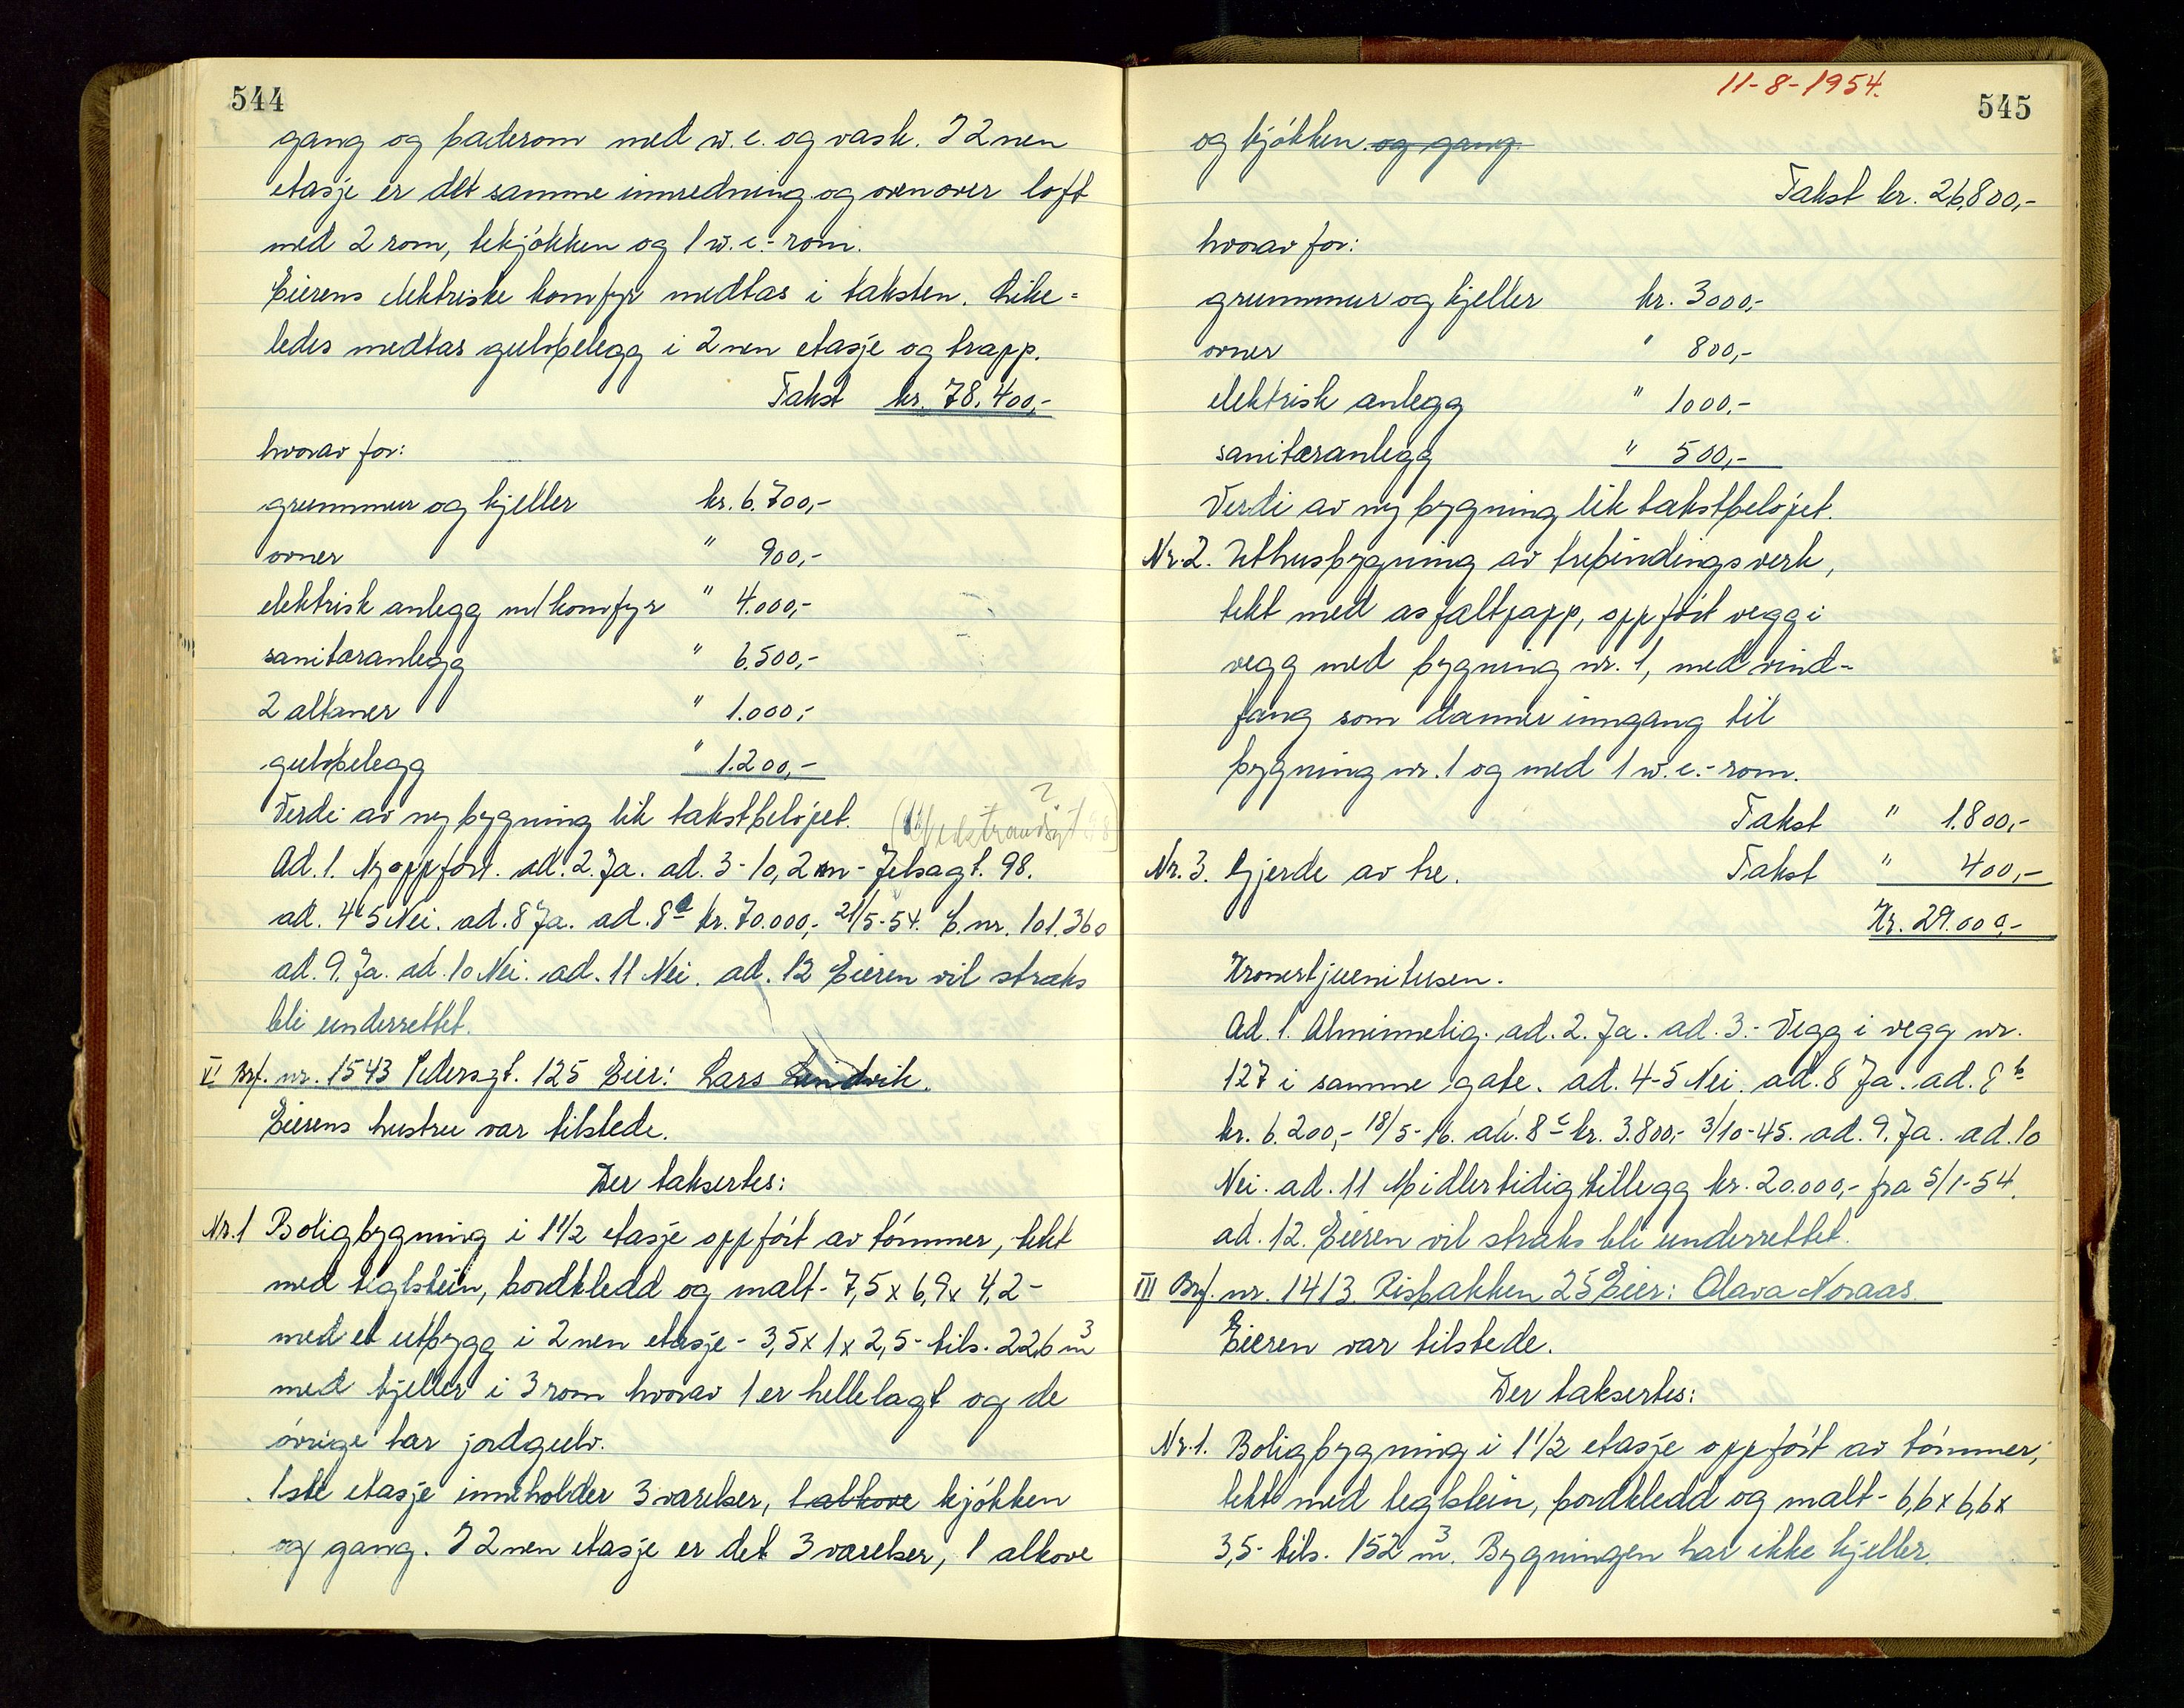 544
gang og baderom med w.c. og vask. I 2nen
etasje er det samme innredning og ovenover loft
med 2 rom, tekjøkken og 1 w.c.-rom.
Eierens elektriske komfyr medtas i taksten. Like=
ledes medtas gulvbelegg i 2nen etasje og trapp.
Takst kr. 78.400,-
hvorav for:
grunnmur og kjeller kr. 6.700,-
ovner " 900,-
elektrisk anlegg m/komfyr " 4.000,-
sanitæranlegg " 6.500,-
2 altaner " 1.000,-
gulvbelegg " 1.200,-
Verdi av ny bygning lik takstbeløpet.
Ad. 1. Nyoppført. ad. 2. Ja. ad. 3 - 10,2 m - Jelsagt. 98.
ad. 4-5 Nei. ad. 8 Ja. ad. 8a kr. 70.000,- 21/5-54. B.nr. 101.360
ad. 9. Ja. ad. 10 Nei. ad. 11 Nei. ad. 12 Eieren vil straks
bli underrettet.
V. Brf. nr. 1543 Pedersgt. 125 Eier: Lars Lindvik.
Eierens hustru var tilstede.
Der taksertes:
Nr. 1 Boligbygning i 1 1/2 etasje oppført av tømmer, tekt
med teglstein, bordkledd og malt - 7,5 x 6,9 x 4,2 -
med et utbygg i 2nen etasje - 3,5 x 1 x 2,5 - tils. 226 m3
med kjeller i 3 rom hvorav 1 er hellelagt og de
øvrige har jordgulv.
1ste etasje inneholder 3 værelser, 1 alkove kjøkken
og gang. I 2nen etasje er det 3 værelser, 1 alkove
11-8-1954.
545
og kjøkken og gang.
Takst kr. 26.800,-
hvorav for:
grunnmur og kjeller kr. 3000,-
ovner " 800,-
elektrisk anlegg " 1000,-
sanitæranlegg " 500,-
Verdi av ny bygning lik takstbeløpet.
Nr. 2. Uthusbygning av trebindingsverk,
tekt med asfaltpapp, oppført vegg i
vegg med bygning nr. 1, med vind-
fang som danner inngang til
bygning nr. 1 og med 1 w.c.-rom.
Takst " 1.800,-
Nr. 3. Gjerde av tre. Takst " 400,-
Kr. 29.000,-
Kronertjuenitusen.
Ad. 1. Alminnelig. ad. 2. Ja. ad. 3. - Vegg i vegg nr.
127 i samme gate. ad. 4-5 Nei. ad. 8 Ja. ad. 8b
kr. 6.200,- 18/5-16. ad. 8c kr. 3.800,- 3/10-45. ad. 9. Ja. ad. 10
Nei. ad. 11 Midlertidig tillegg kr. 20.000,- fra 5/1-54.
ad. 12. Eieren vil straks bli underrettet.
III Brf. nr. 1413 Risbakken 25 Eier: Olava Noraas.
Eieren var tilstede.
Der taksertes:
Nr. 1. Boligbygning i 1 1/2 etasje oppført av tømmer,
tekt med teglstein, bordkledd og malt - 6,6 x 6,6 x
3,5 - tils. 152 m3. Bygningen har ikke kjeller.